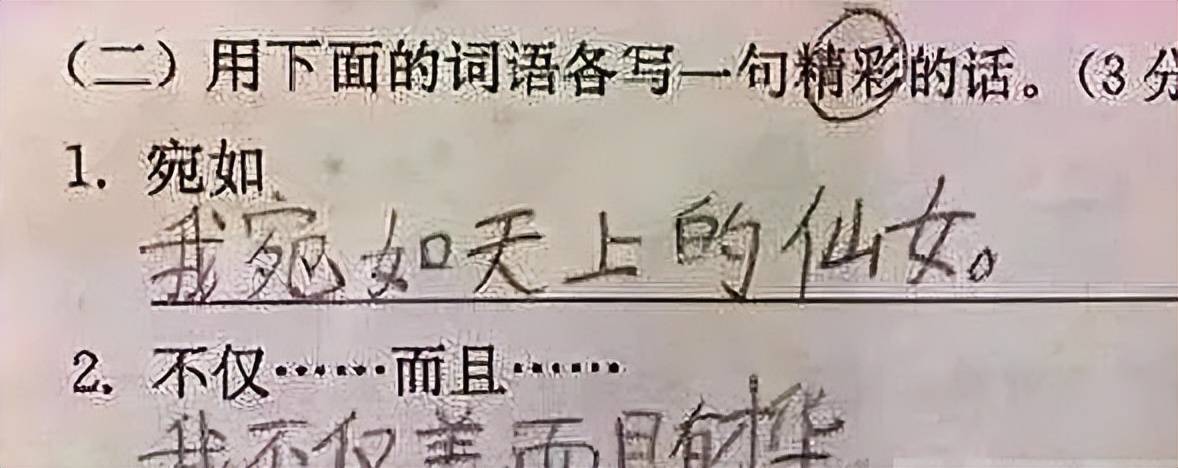 （二）用下面的词语各写一句精彩的话。（3分
1. 宛如
我宛如天上的仙女。
2. 不仅……而且……
我不仅美而且有才华